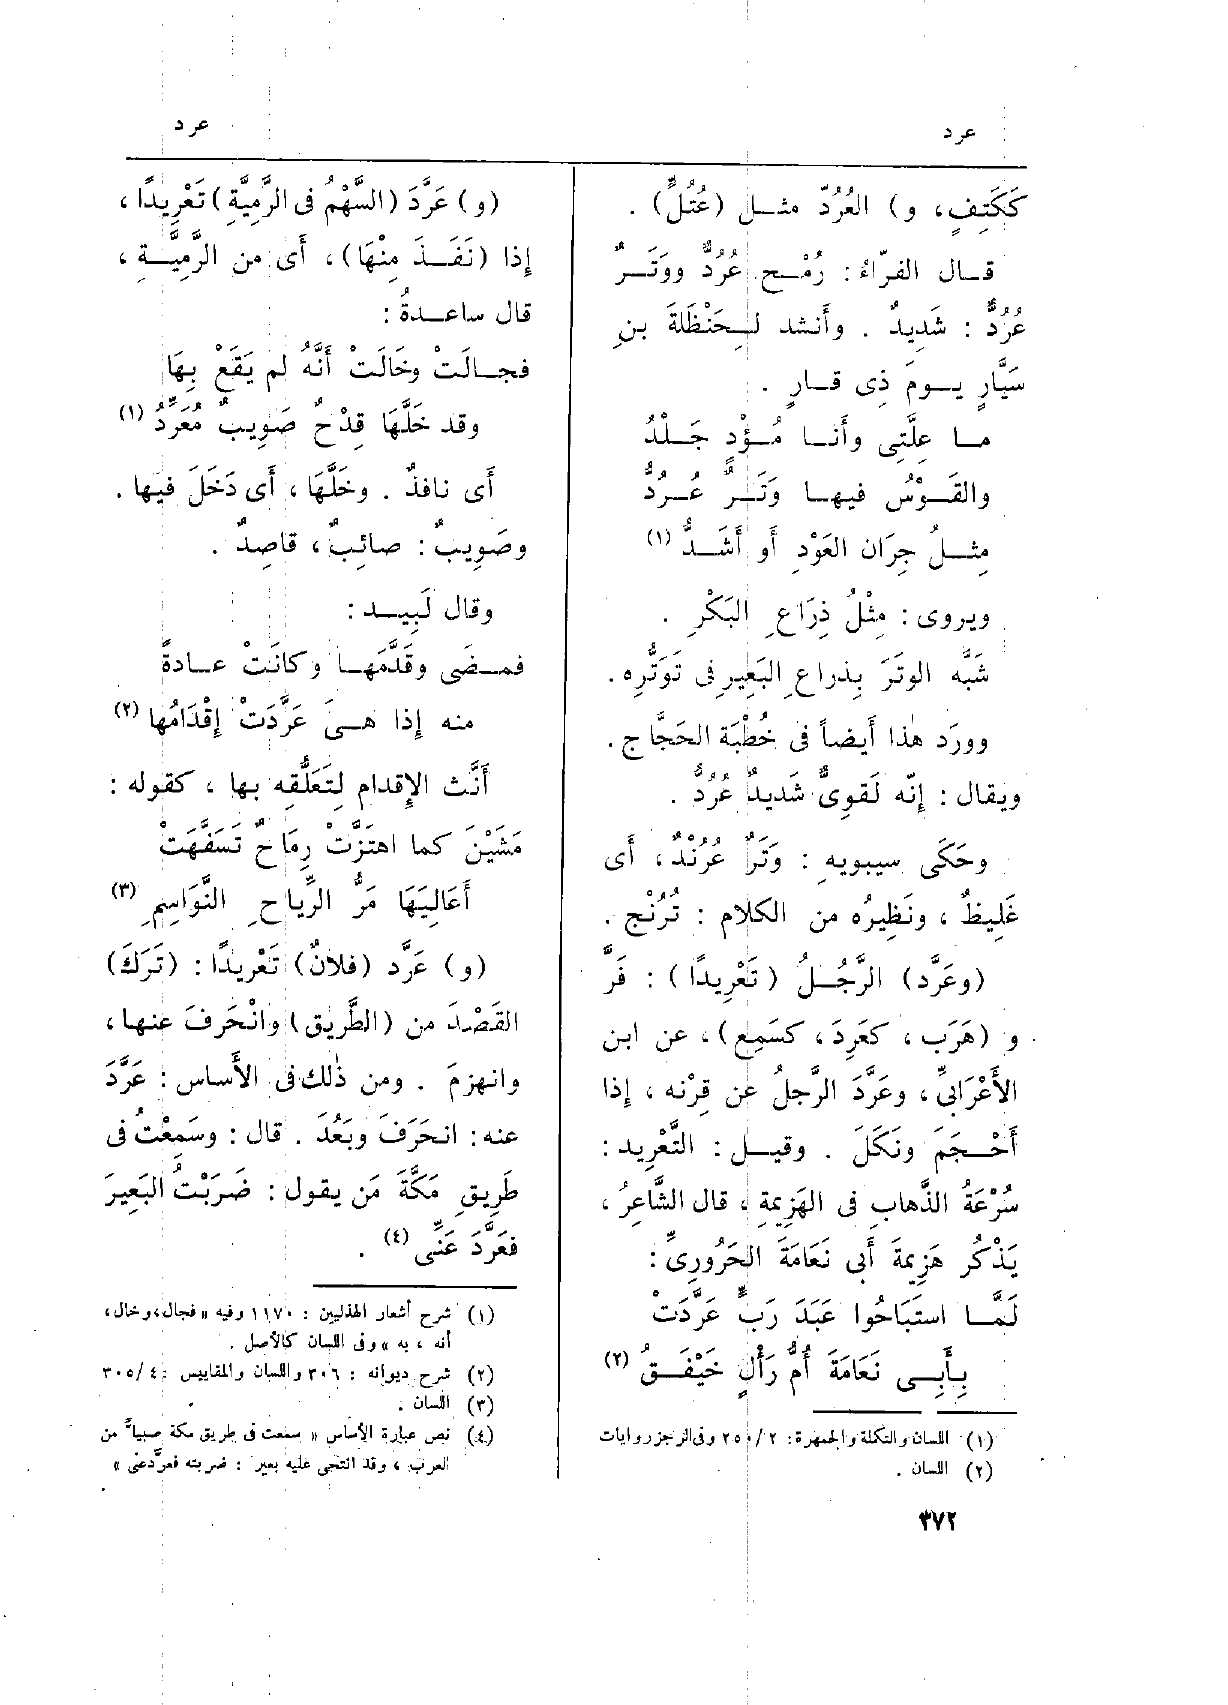 عرد
عرد
كَكَتِفٍ، و) العُرُدّ مثـل (عُتُلٍّ) .
قـال الفرّاءُ : رُمْـح عُرُدٌّ ووَتَـرٌ
عُرُدٌّ : شَدِيدٌ . وأَنشد لـحَنْظَلَةَ بنِ
سَيَّارٍ يـومَ ذِى قـارٍ .
مـا عِلَّتِى وأَنـا مُـؤْدٍ جَـلْدُ
والقَـوْسُ فيهـا وَتَـرٌ عُـرُدُّ
مِثـلُ جِرَان العَوْدِ أَو أَشَـدُّ (١)
ويروى : مِثْلُ ذِرَاعِ البَكْرِ .
شَبَّه الوتَرَ بِذراعِ البَعِيرِ فى تَوَتُّرِه .
وورَد هٰذا أَيضاً فى خُطْبَة الحَجَّاج .
ويقال : إِنّه لَقوِىٌّ شَدِيدٌ عُرُدٌّ .
وحَكَى سيبويهِ : وَتَرٌ عُرُنْدٌ ، أَى
غَلِيظٌ ، ونَظِيرُه من الكلام : تُرُنْج .
(وعَرَّد) الرَّجُـلُ (تَعْرِيدًا) : فَرَّ
و (هَرَب ، كعَرِدَ ، كسَمِع) ، عن ابن
الأَعْرَابىِّ ، وعَرَّدَ الرَّجلُ عن قِرْنه ، إِذا
أَحْـجَمَ ونَكَلَ . وقيـل : التَّعْرِيد :
سُرْعَةُ الذَّهاب فى الهَزِيمةِ ، قال الشَّاعِرُ ،
يَذْكُر هَزِيمةَ أَبى نَعَامَةَ الحَرُورِىِّ :
لَمَّـا استَبَاحُوا عَبْدَ رَبٍّ عَرَّدَتْ
بـأَبِـى نَعَامَةَ أُمُّ رَأْلٍ خَيْفَـقُ (٢)
(١) اللسان والتكملة والجمهرة: ٢/٢٥٠ وفى الرجز روايات
(٢) اللسان .
(و) عَرَّدَ (السَّهْمُ فى الرَّمِيَّةِ) تَعْرِيدًا ،
إِذا (نَفَـذَ مِنْهَا) ، أَى من الرَّمِيَّـةِ ،
قال ساعـدةُ :
فجـالَتْ وخَالَتْ أَنَّهُ لم يَقَعْ بِهَا
وقد خَلَّهَا قِدْحٌ صَوِيبٌ مُعَرِّدُ (١)
أَى نافذٌ . وخَلَّهَا ، أَى دَخَلَ فيها .
وصَوِيبٌ : صائِبٌ ، قاصِدٌ .
وقال لَبِيـد :
فمـضَى وقَدَّمَهـا وكانَتْ عـادةً
منه إِذا هـىَ عَرَّدَتْ إِقْدَامُها (٢)
أَنَّث الإِقدام لِتَعَلُّقِه بها ، كقوله :
مَشَيْنَ كما اهتَزَّتْ رِمَاحٌ تَسَفَّهَتْ
أَعَالِيَهَا مَرُّ الرِّياحِ النَّوَاسِمِ (٣)
(و) عَرَّد (فلانٌ) تَعْرِيدًا : (تَرَكَ)
القَصْدَ من (الطَّرِيق) وانْحَرفَ عنها ،
وانهزمَ . ومن ذٰلك فى الأَساس : عَرَّدَ
عنه : انحَرَفَ وبَعُدَ . قال : وسَمِعْتُ فى
طَرِيقِ مَكَّةَ مَن يقول : ضَرَبْتُ البَعِيرَ
فعَرَّدَ عَنِّى (٤) .
(١) شرح أشعار الهذليين : ١١٧٠ وفيه « فجال ، وخال ،
أنه ، به » وفى اللسان كالأصل .
(٢) شرح ديوانه : ٣٠٦ واللسان والمقاييس : ٤/٣٠٥
(٣) اللسان .
(٤) نص عبارة الأساس « سمعت فى طريق مكة صبياً من
العرب ، وقد انتحى عليه بعير : ضربته فعرَّد عنى »
٣٧٢